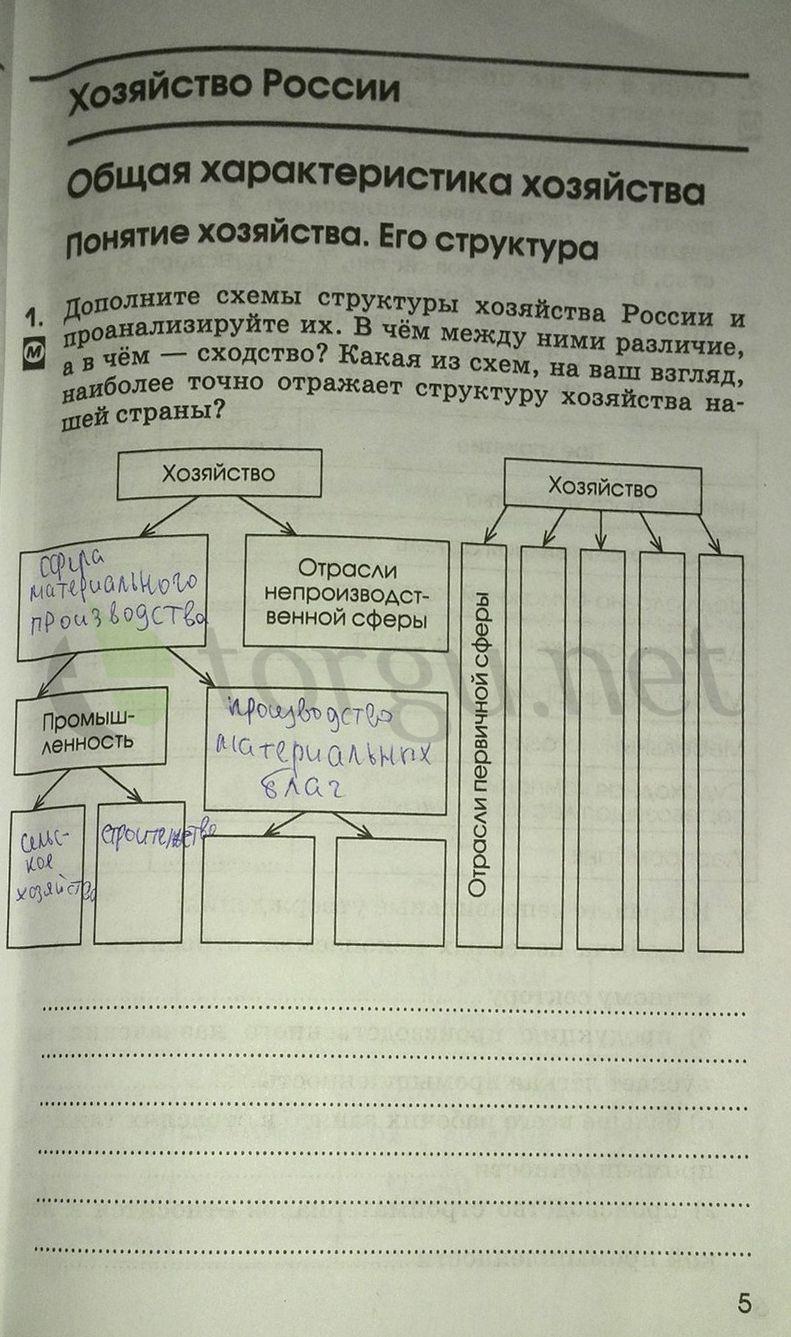 Хозяйство России
Общая характеристика хозяйства
Понятие хозяйства. Его структура
1. Дополните схемы структуры хозяйства России и
М проанализируйте их. В чём между ними различие,
а в чём — сходство? Какая из схем, на ваш взгляд,
наиболее точно отражает структуру хозяйства на-
шей страны?
Хозяйство
Хозяйство
сфера
материального
производства
Отрасли
непроизводст-
венной сферы
Промыш-
ленность
производство
материальных
благ
сельс-
кое
хозяйство
строительство
Отрасли первичной сферы
torgu.net
5